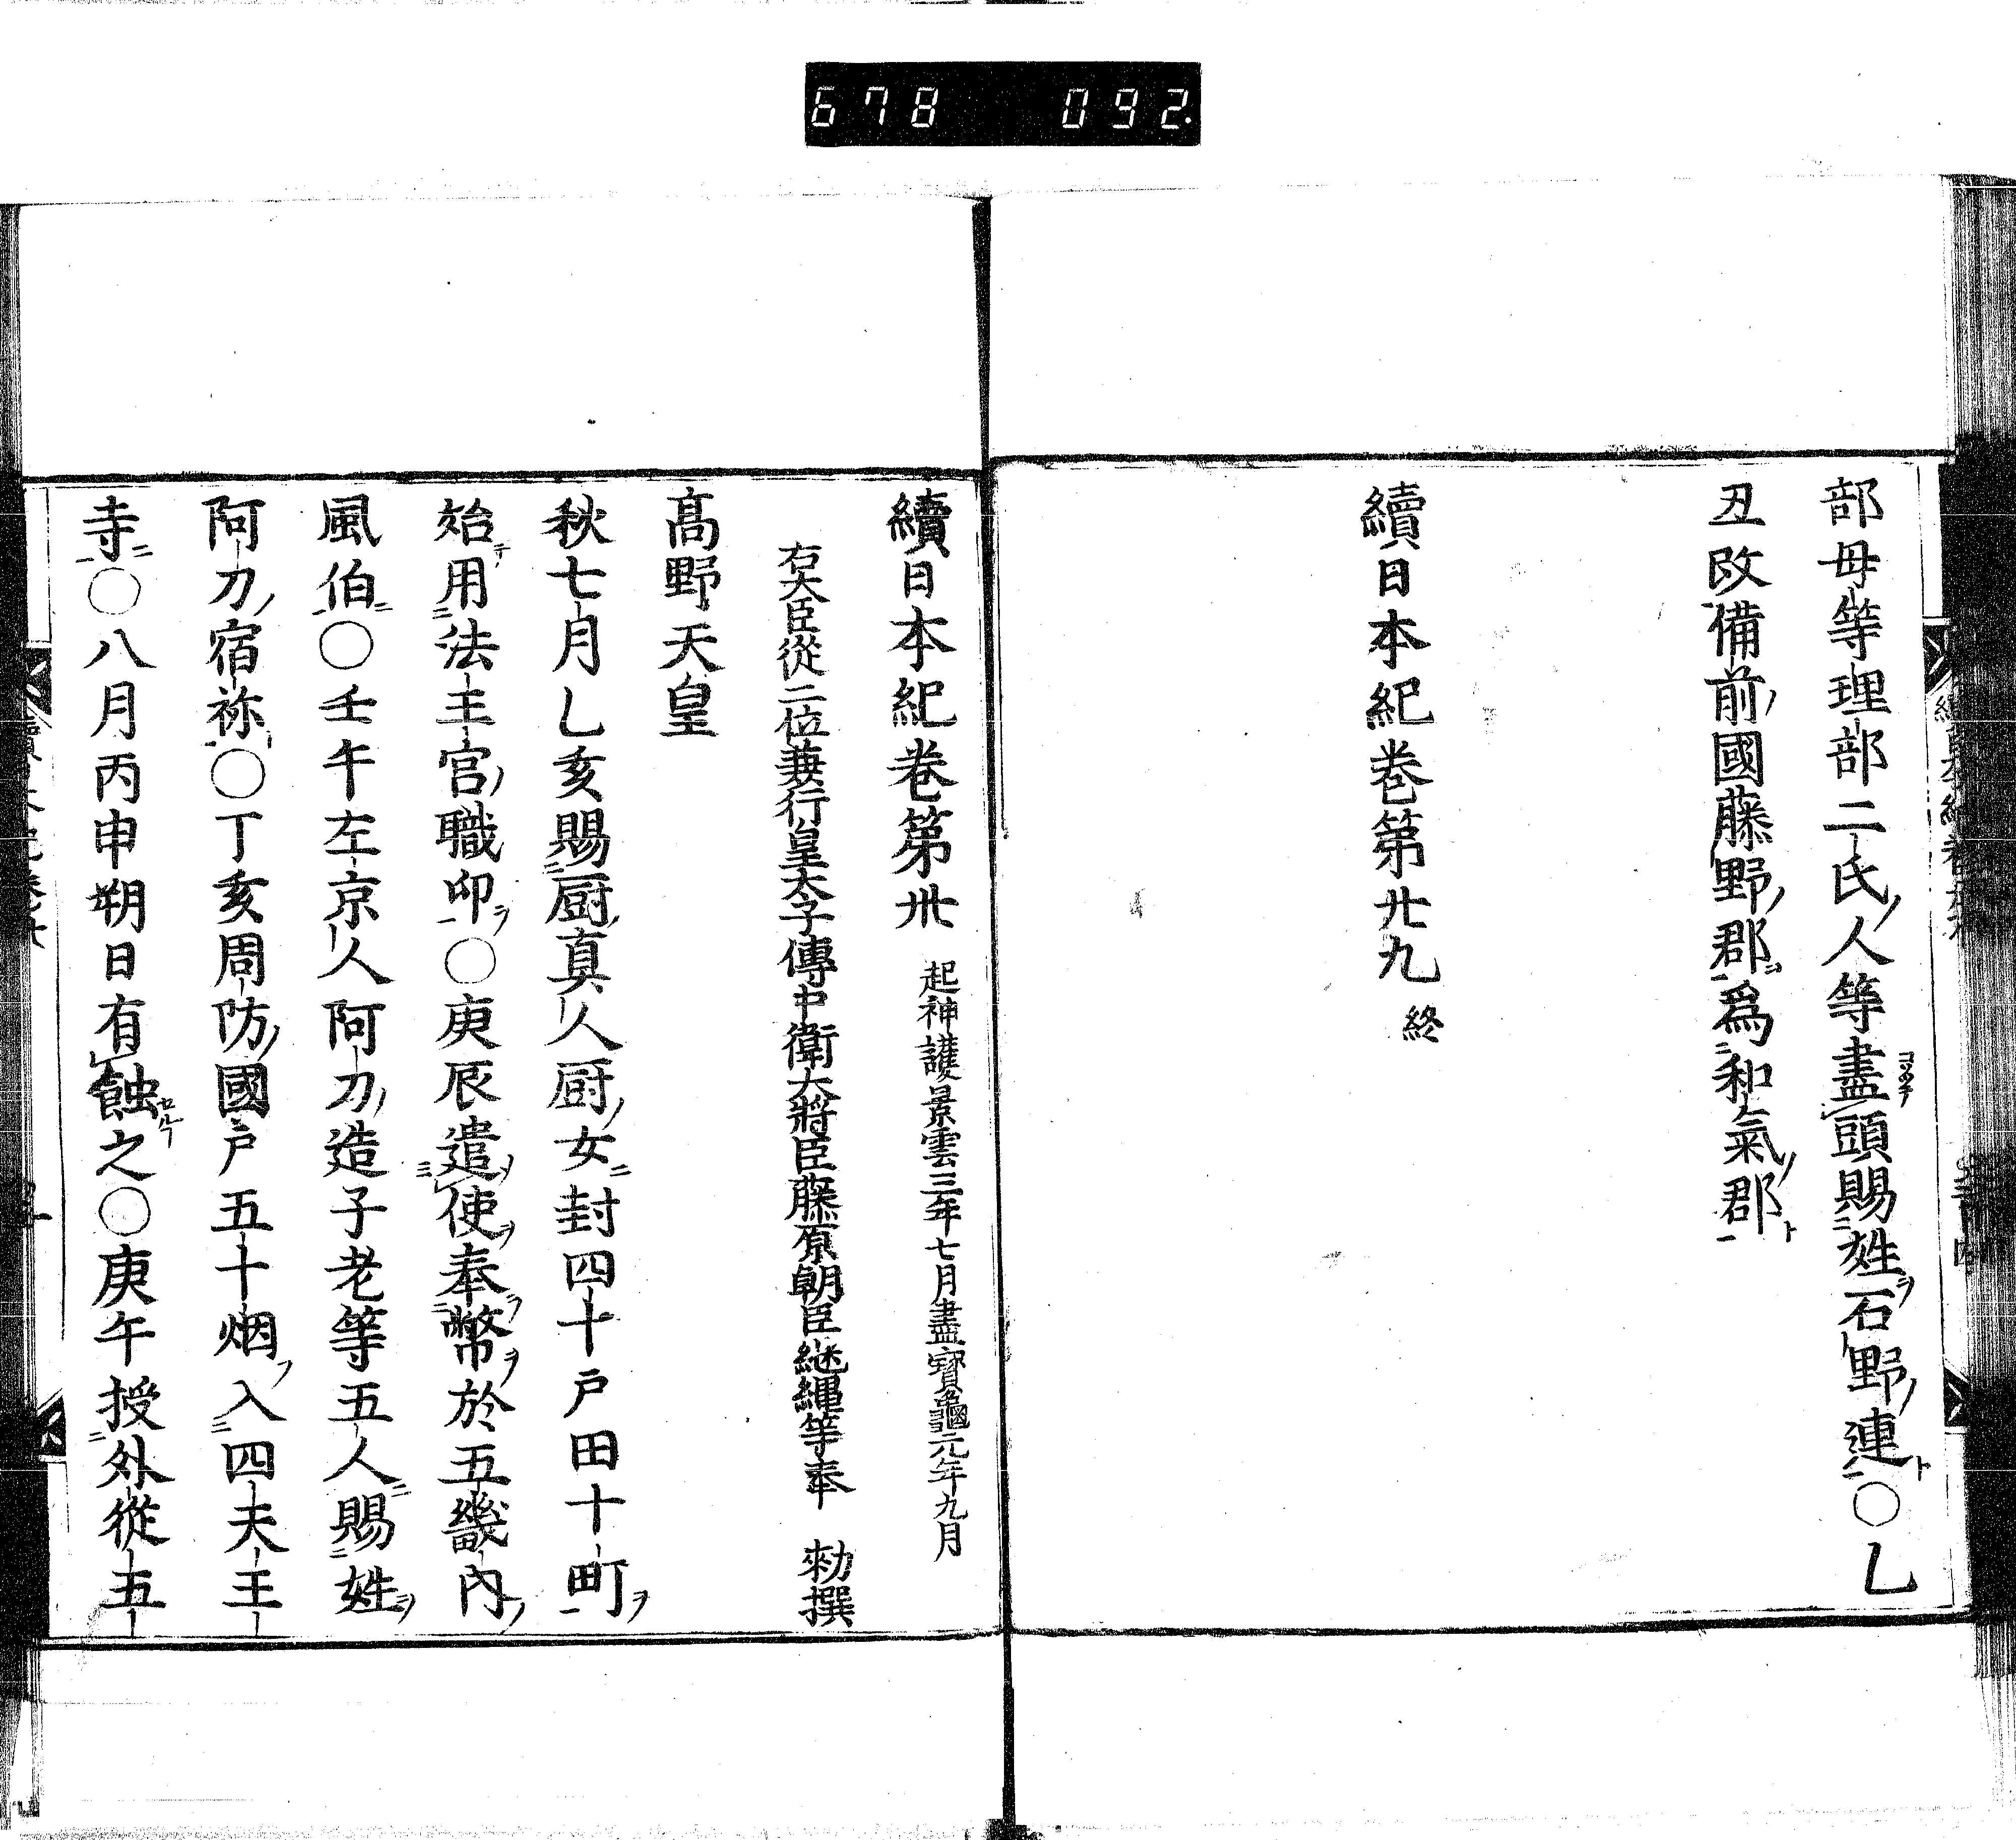 678 092.
部毋等理部二氏人等盡頭賜姓石野連○乙
丑改備前國藤野郡爲和氣郡
續日本紀巻第廿九 終
續日本紀巻第卅 起神護景雲三年七月盡寶龜元年九月
右大臣從二位兼行皇太子傅中衛大將臣藤原朝臣継縄等奉 勅撰
髙野天皇
秋七月乙亥賜厨真人厨女封四十戸田十町
始用法王宮職印○庚辰遣使奉幣於五畿內
風伯○壬午左京人阿刀造子老等五人賜姓
阿刀宿祢○丁亥周防國戸五十烟入四天王
寺○八月丙申朔日有蝕之○庚午授外從五